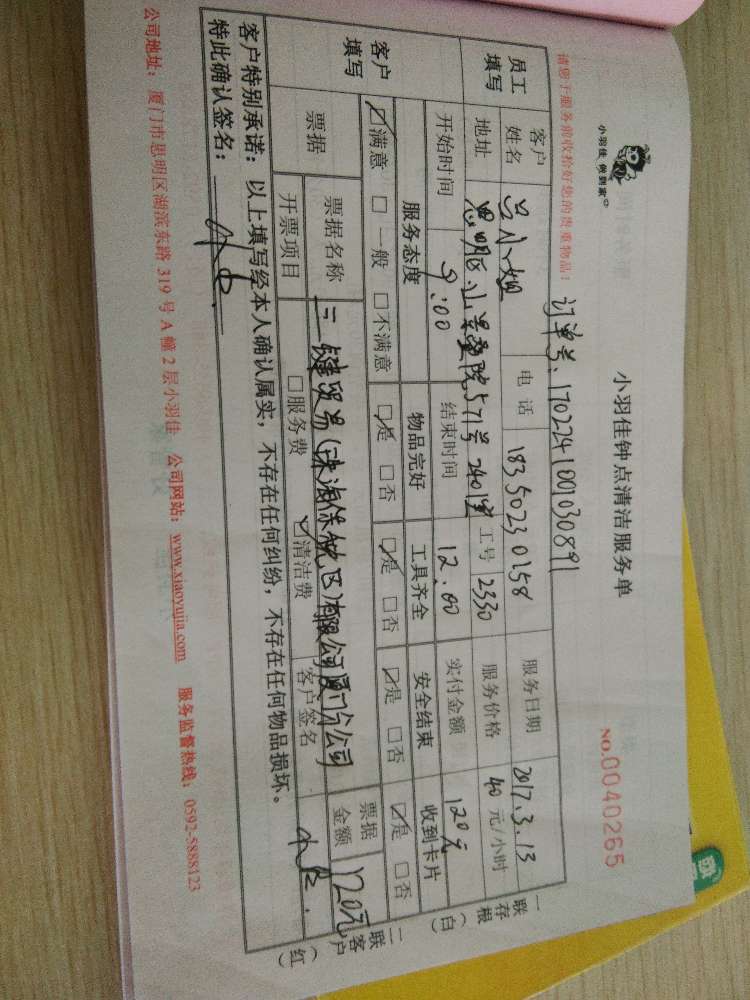 小羽佳 做到家
小羽佳钟点清洁服务单
NO.0040265
请您于服务前收拾好您的贵重物品!
订单号:170224100103089
员工填写
客户姓名 吕小姐 电话 18350230158 服务日期 2017.3.13
地址 思明区 571号2401室 工号 2330 服务价格 40元/小时
开始时间 9:00 结束时间 12:00 实付金额 120元
客户填写
服务态度 物品完好 工具齐全 安全结束 收到卡片
☑满意 □一般 □不满意 ☑是 □否 ☑是 □否 ☑是 □否 ☑是 □否
票据 票据名称 三键贸易(珠海保税区)有限公司厦门分公司 票据金额 120元
开票项目 □服务费 ☑清洁费 客户签名
客户特别承诺:以上填写经本人确认属实,不存在任何纠纷,不存在任何物品损坏。
特此确认签名:
一联存根(白) 二联客户(红)
公司地址:厦门市思明区湖滨东路 319 号 A 幢 2 层小羽佳 公司网站:www.xiaoyujia.com 服务监督热线:0592-5888123